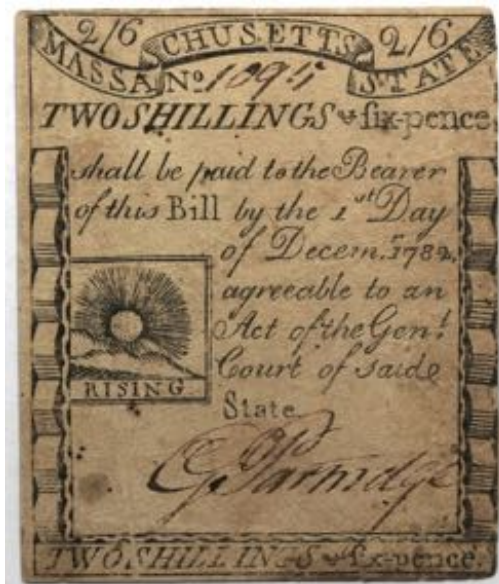 2/6 CHUSETTS 2/6
MASSA Nº 1094 STATE
TWO SHILLINGS & six-pence
shall be paid to the Bearer
of this Bill by the 1st Day
of Decem.r 1782,
agreeable to an
Act of the Gen!
Court of said
State.
RISING
G Partridge
TWO SHILLINGS & six-pence